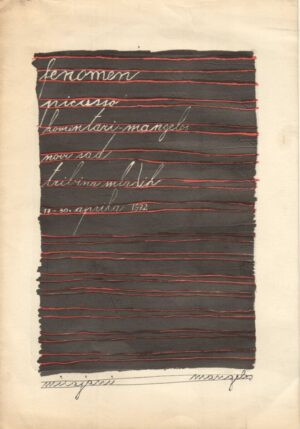 fenomen
picasso
komentari-mangelos
novi sad
tribina mladih
aprila 1972
mangelos